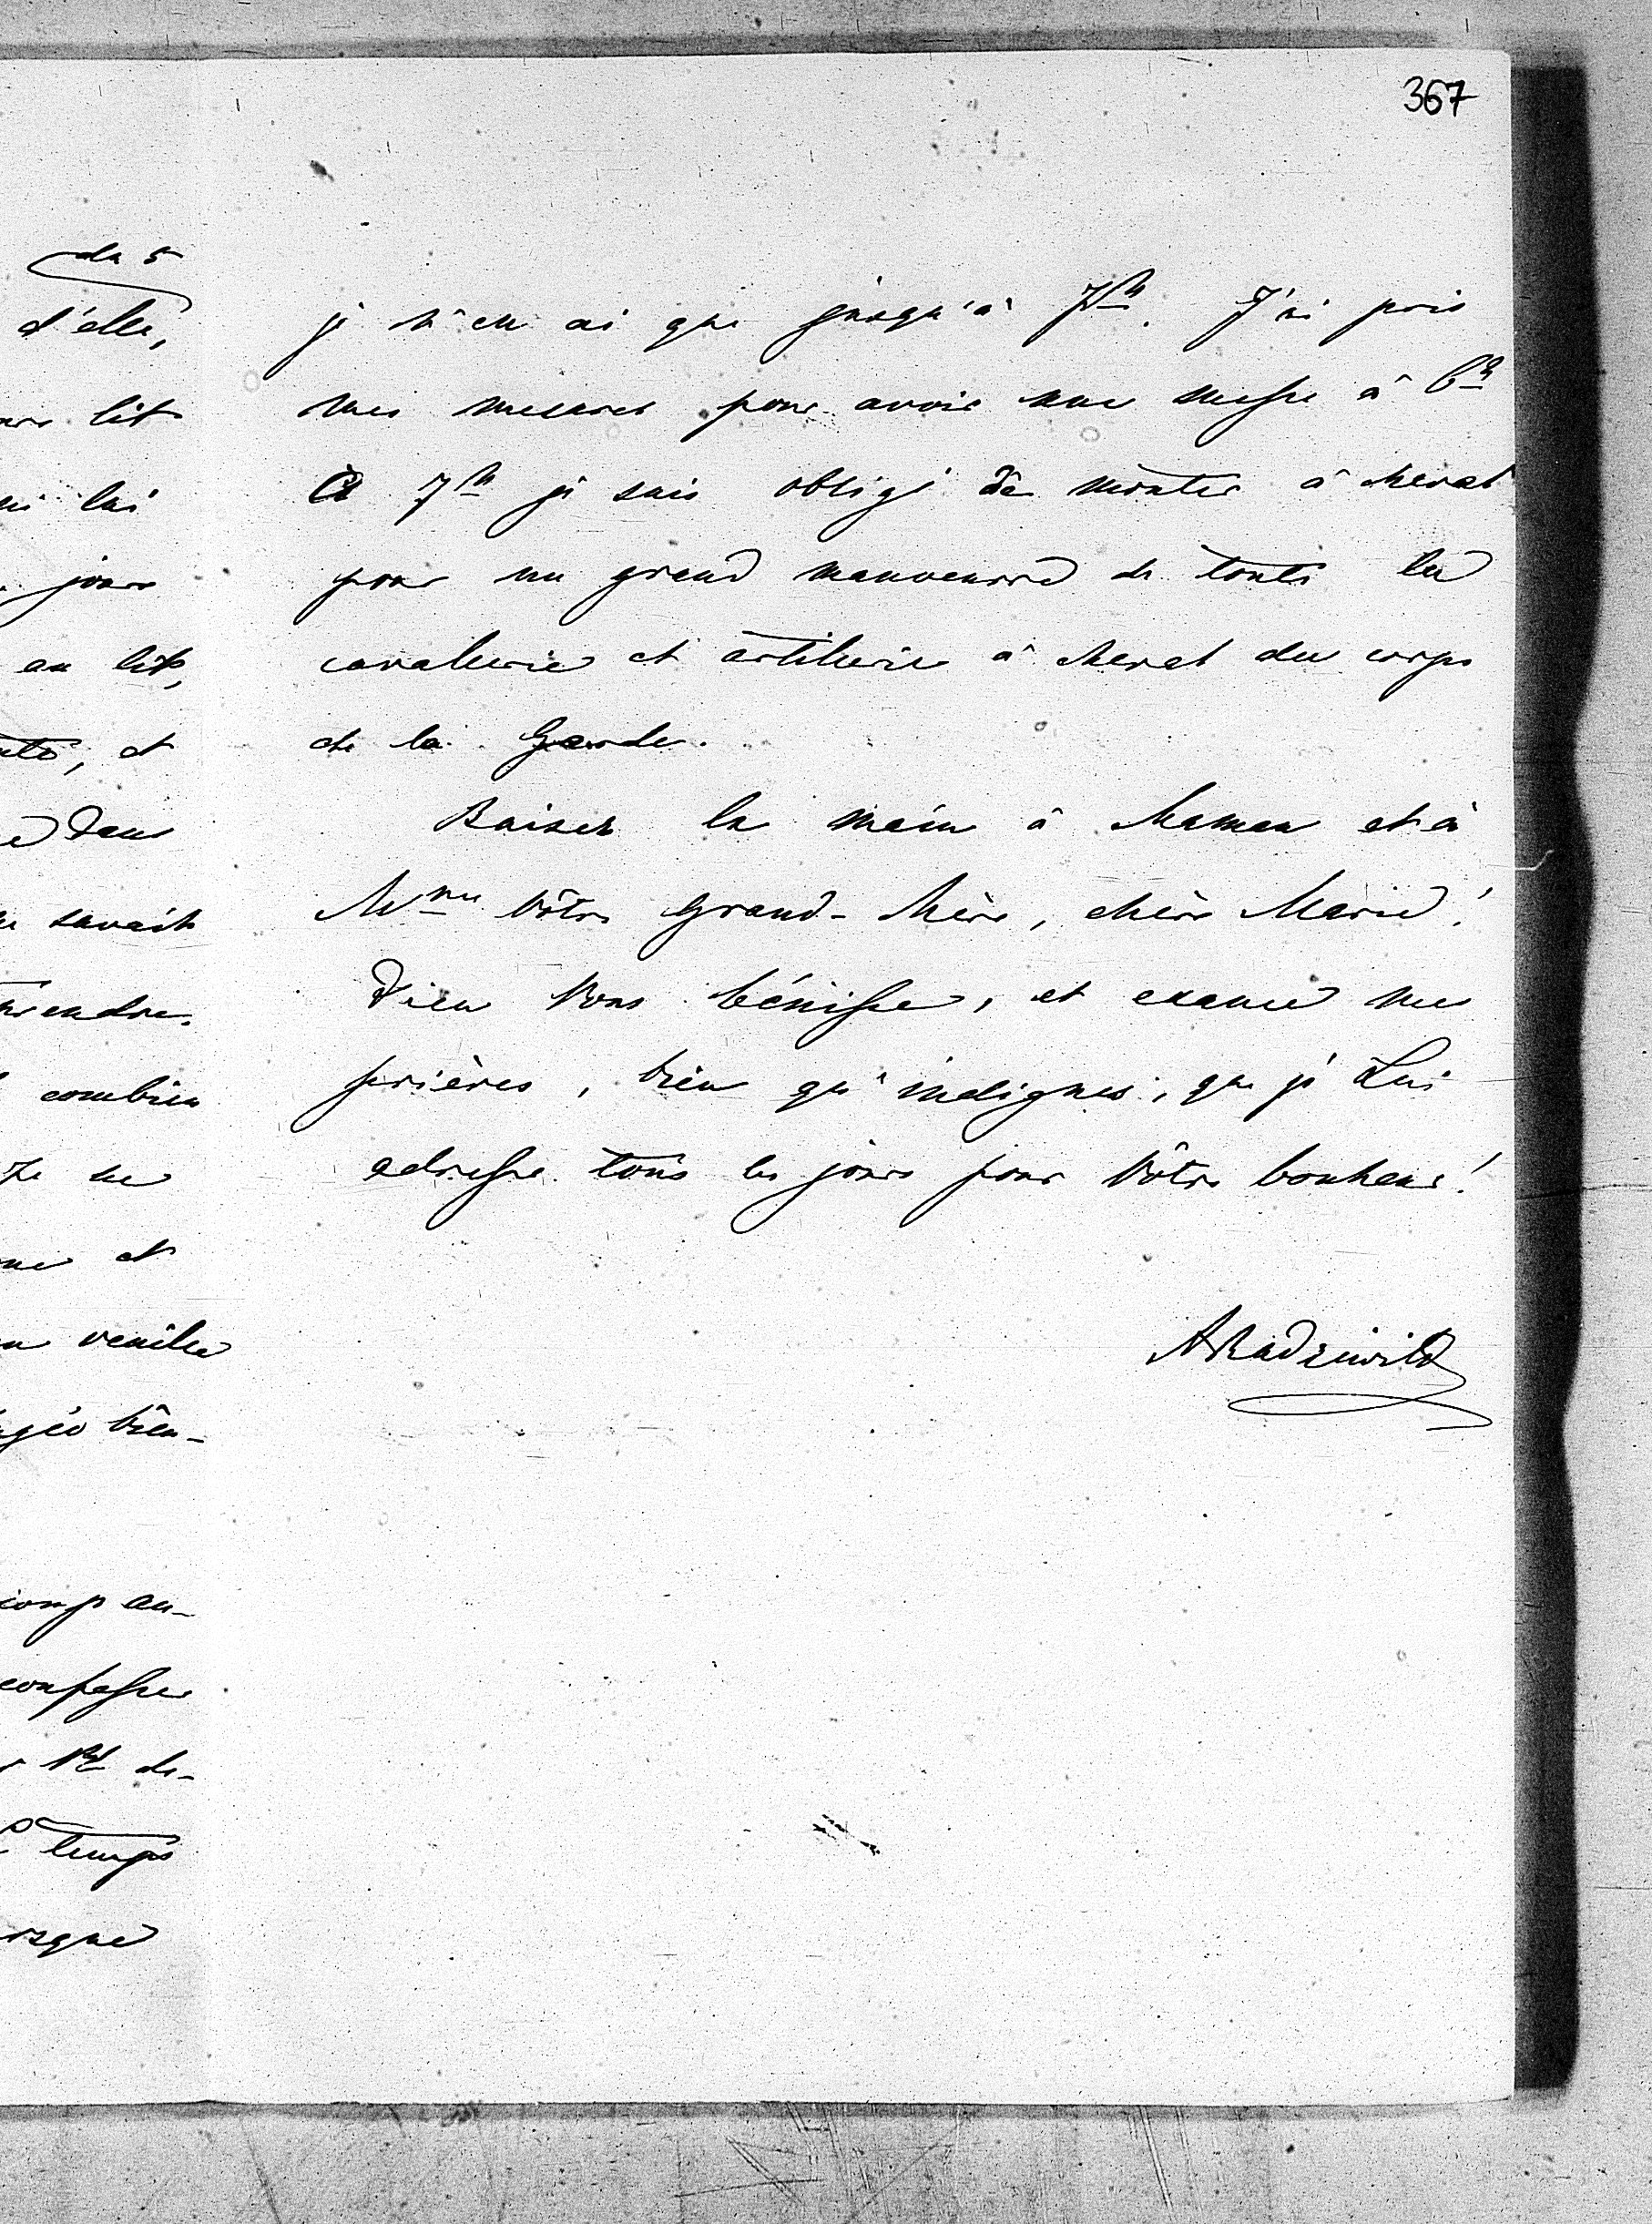 367
du 5
d'elle,
lit
lui
jours
au lit,
et
dans
savait
combien
et
veuille
bien-
temps
je n'en ai que jusqu'à 7h. J'ai pris
mes mesures pour avoir une messe à 6h
à 7h je suis obligé de monter à cheval
pour un grand manoeuvre de toute la
cavalerie et artillerie à cheval du corps
de la Garde.
Baisez la main à Maman et à
Mme Vôtre Grand-Mère, chère Marie!
Dieu Vous bénisse, et exauce mes
prières, bien qu'indignes, que je Lui
adresse tous les jours pour Vôtre bonheur!
ARadziwiłł